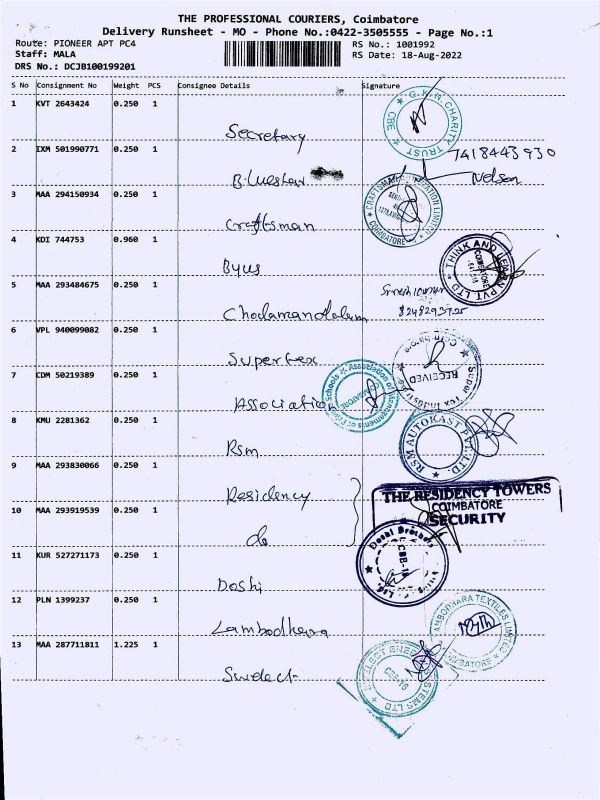 THE PROFESSIONAL COURIERS, Coimbatore
Delivery Runsheet - MO - Phone No.:0422-3505555 - Page No.:1
Route: PIONEER APT PC4 RS No.: 1001992
Staff: MALA RS Date: 18-Aug-2022
DRS No.: DCJB100199201
S No Consignment No Weight PCS Consignee Details Signature
1 KVT 2643424 0.250 1
G.K.R. CHARITY TRUST CBE
Secretary
2 IXM 501990771 0.250 1
7418443930
B.luestar Nelson
3 MAA 294150934 0.250 1
CRAFTSMAN LIMITED COIMBATORE
Craftsman
4 KDI 744753 0.960 1
THINK AND LEARN PVT LTD COIMBATORE
Byus
5 MAA 293484675 0.250 1
Cholamandalam
8248293725
6 VPL 940099082 0.250 1
Supertex
RECEIVED
7 CDM 50219389 0.250 1
Association
Schools Association of Managements of
8 KMU 2281362 0.250 1
RSM AUTOKAST PVT. LTD.
Rsm
9 MAA 293830066 0.250 1
Residency
THE RESIDENCY TOWERS
COIMBATORE
SECURITY
10 MAA 293919539 0.250 1
do
11 KUR 527271173 0.250 1
Doshi Brothers
CBE-18
Doshi
12 PLN 1399237 0.250 1
LAMBODHARA TEXTILES LIMITED COIMBATORE
Lambodhara
13 MAA 287711811 1.225 1
SYSTEMS LTD
CBE-18
Swelect